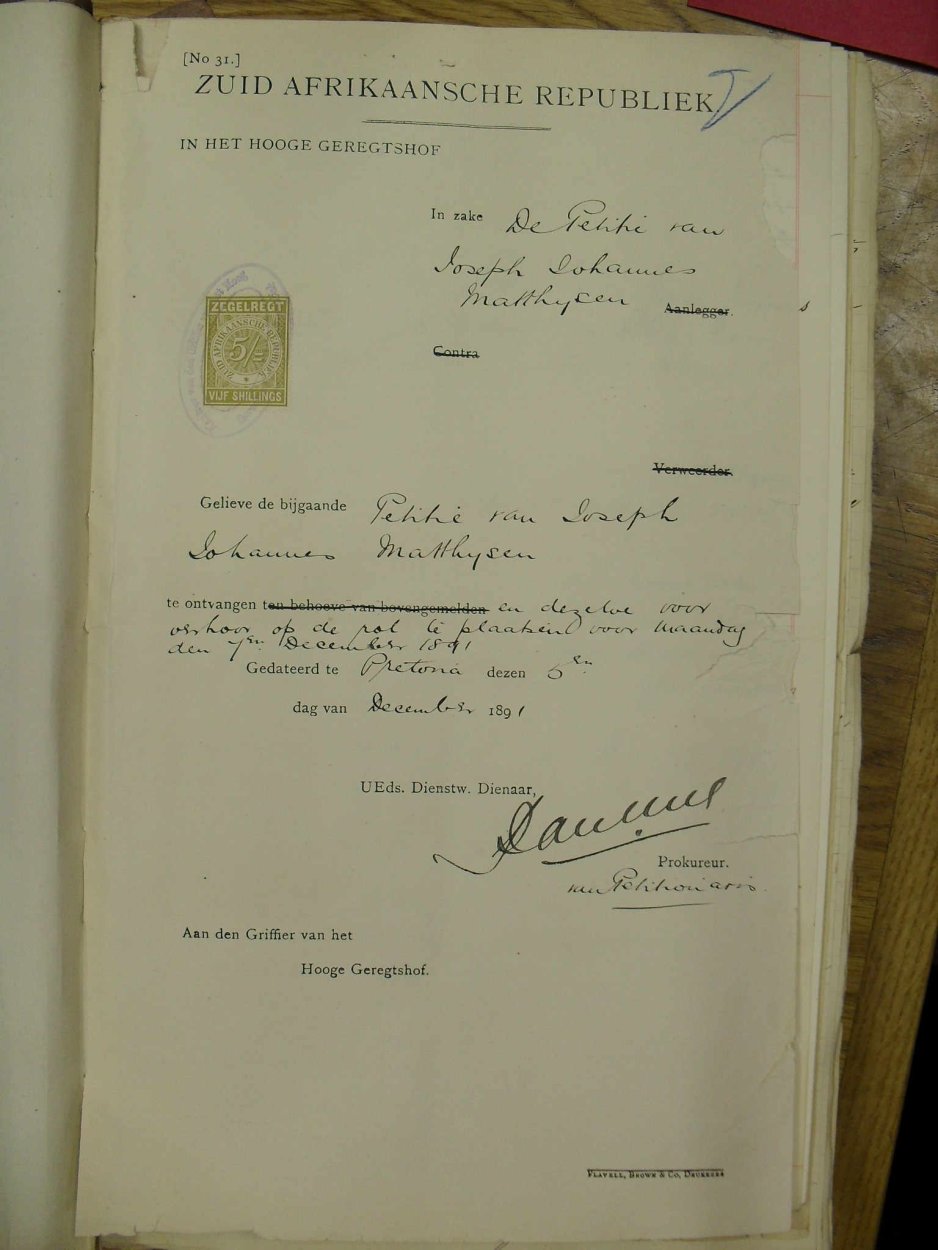 [No 31.]
ZUID AFRIKAANSCHE REPUBLIEK
IN HET HOOGE GEREGTSHOF
In zake De Petitie van
Joseph Johannes
Matthysen Aanlegger.
Contra
ZEGELREGT
ZUID AFRIKAANSCHE REPUBLIEK
5/=
VIJF SHILLINGS
Verweerder.
Gelieve de bijgaande Petitie van Joseph
Johannes Matthysen
te ontvangen ten behoeve van bovengemelden en dezelve voor
verhoor op de rol te plaatsen voor Maandag
den 7en December 1891
Gedateerd te Pretoria dezen 5en
dag van December 1891
UEds. Dienstw. Dienaar,
Prokureur.
van Petitionaris.
Aan den Griffier van het
Hooge Geregtshof.
FLAVELL, BROWN & CO, DRUKKERS